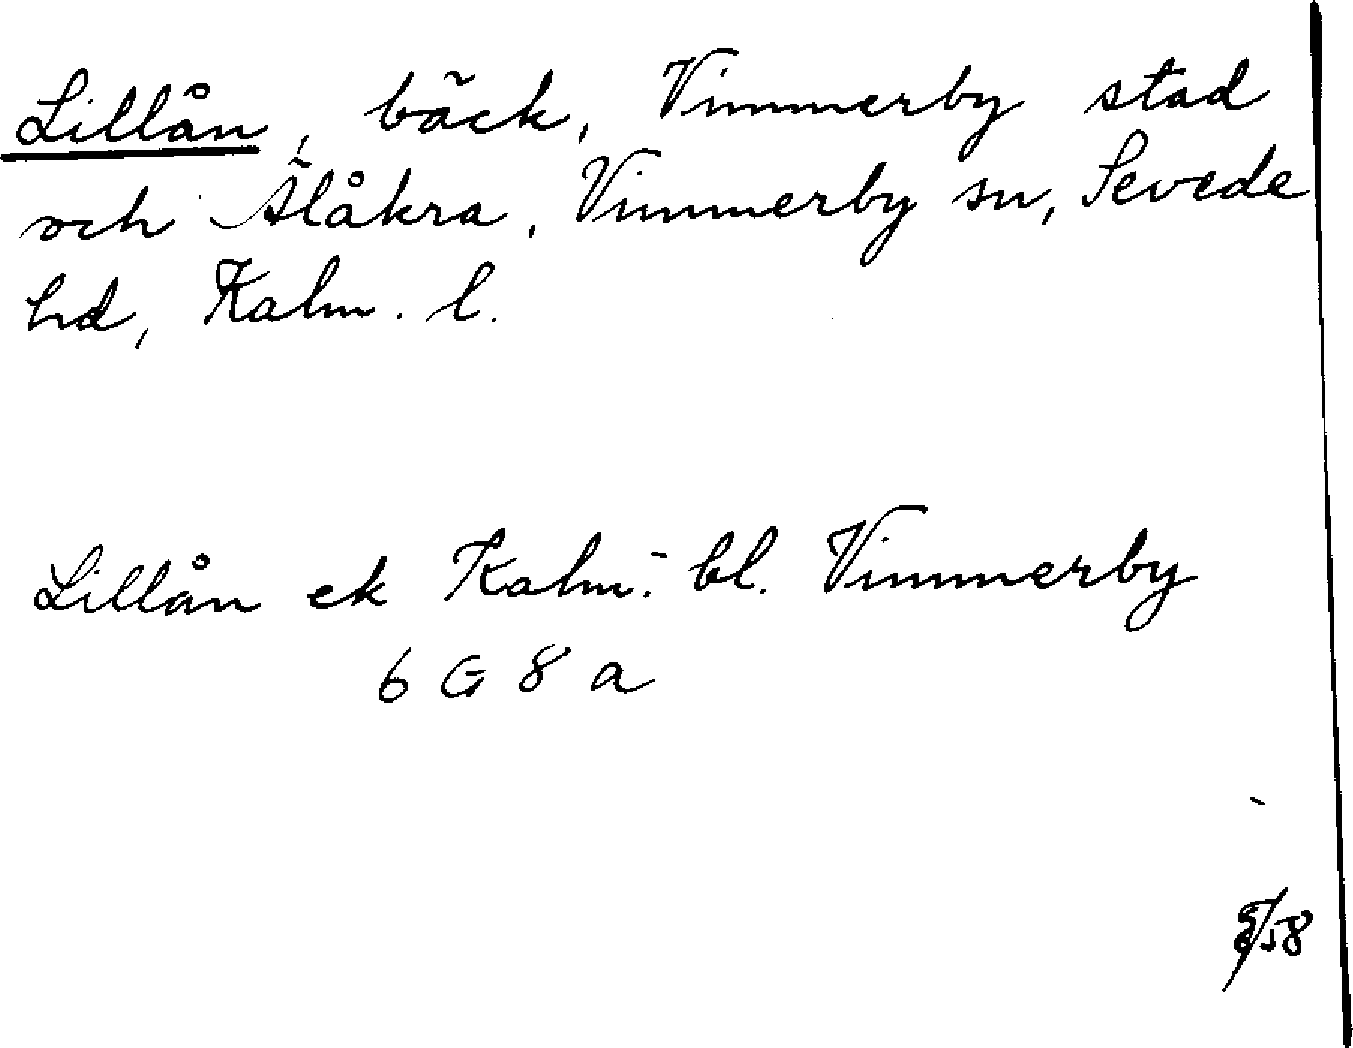 Lillån, bäck, Vimmerby stad
och Älåkra, Vimmerby sn, Sevede
hd, Kalm. l.
Lillån ek Kalm:- bl. Vimmerby
6 G 8 a